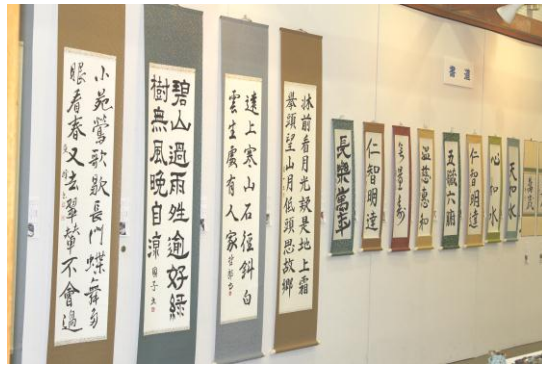 小苑鶯歌歇長門蝶舞多
眼看春又去翠輦不曾過
碧山過雨晴逾好緑
樹無風晩自涼
遠上寒山石徑斜白
雲生處有人家
牀前看月光疑是地上霜
擧頭望山月低頭思故郷
書道
長樂萬年
仁智明達
無量壽
温慈惠和
五臓六腑
仁智明達
心如水
天如水